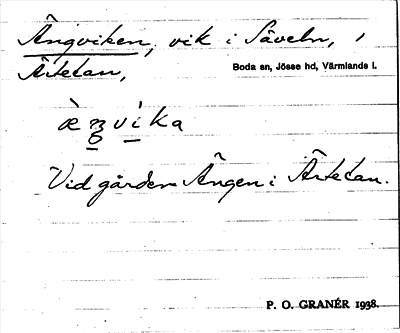 Ängviken, vik i Säveln, i
Ärtetan,
Boda sn, Jösse hd, Värmlands l.
Vid gården Ängen i Ärtetan.
P. O. GRANÉR 1938.